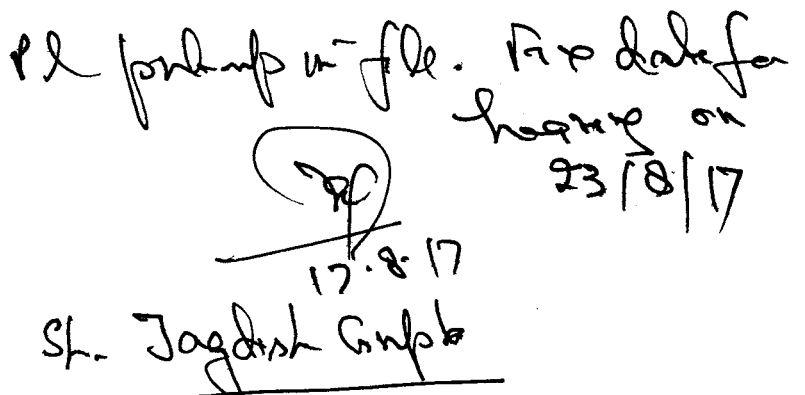 Pl put up in file. Fix date for
hearing on
23/8/17
17.8.17
Sh. Jagdish Gupta